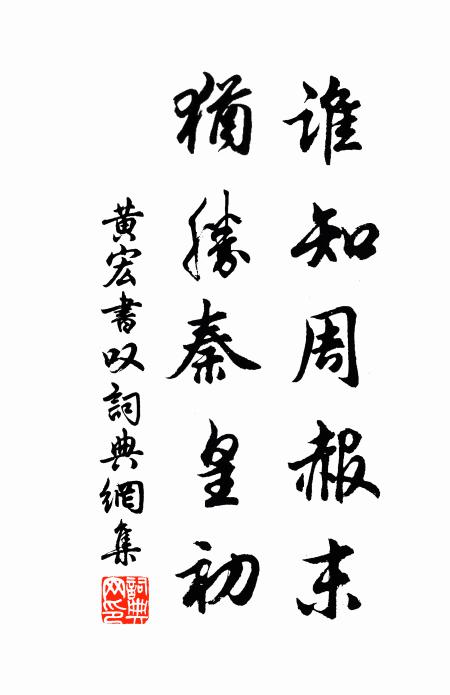 誰知周赧末
猶勝秦皇初
黃宏書叹詞典網集
詞典网印